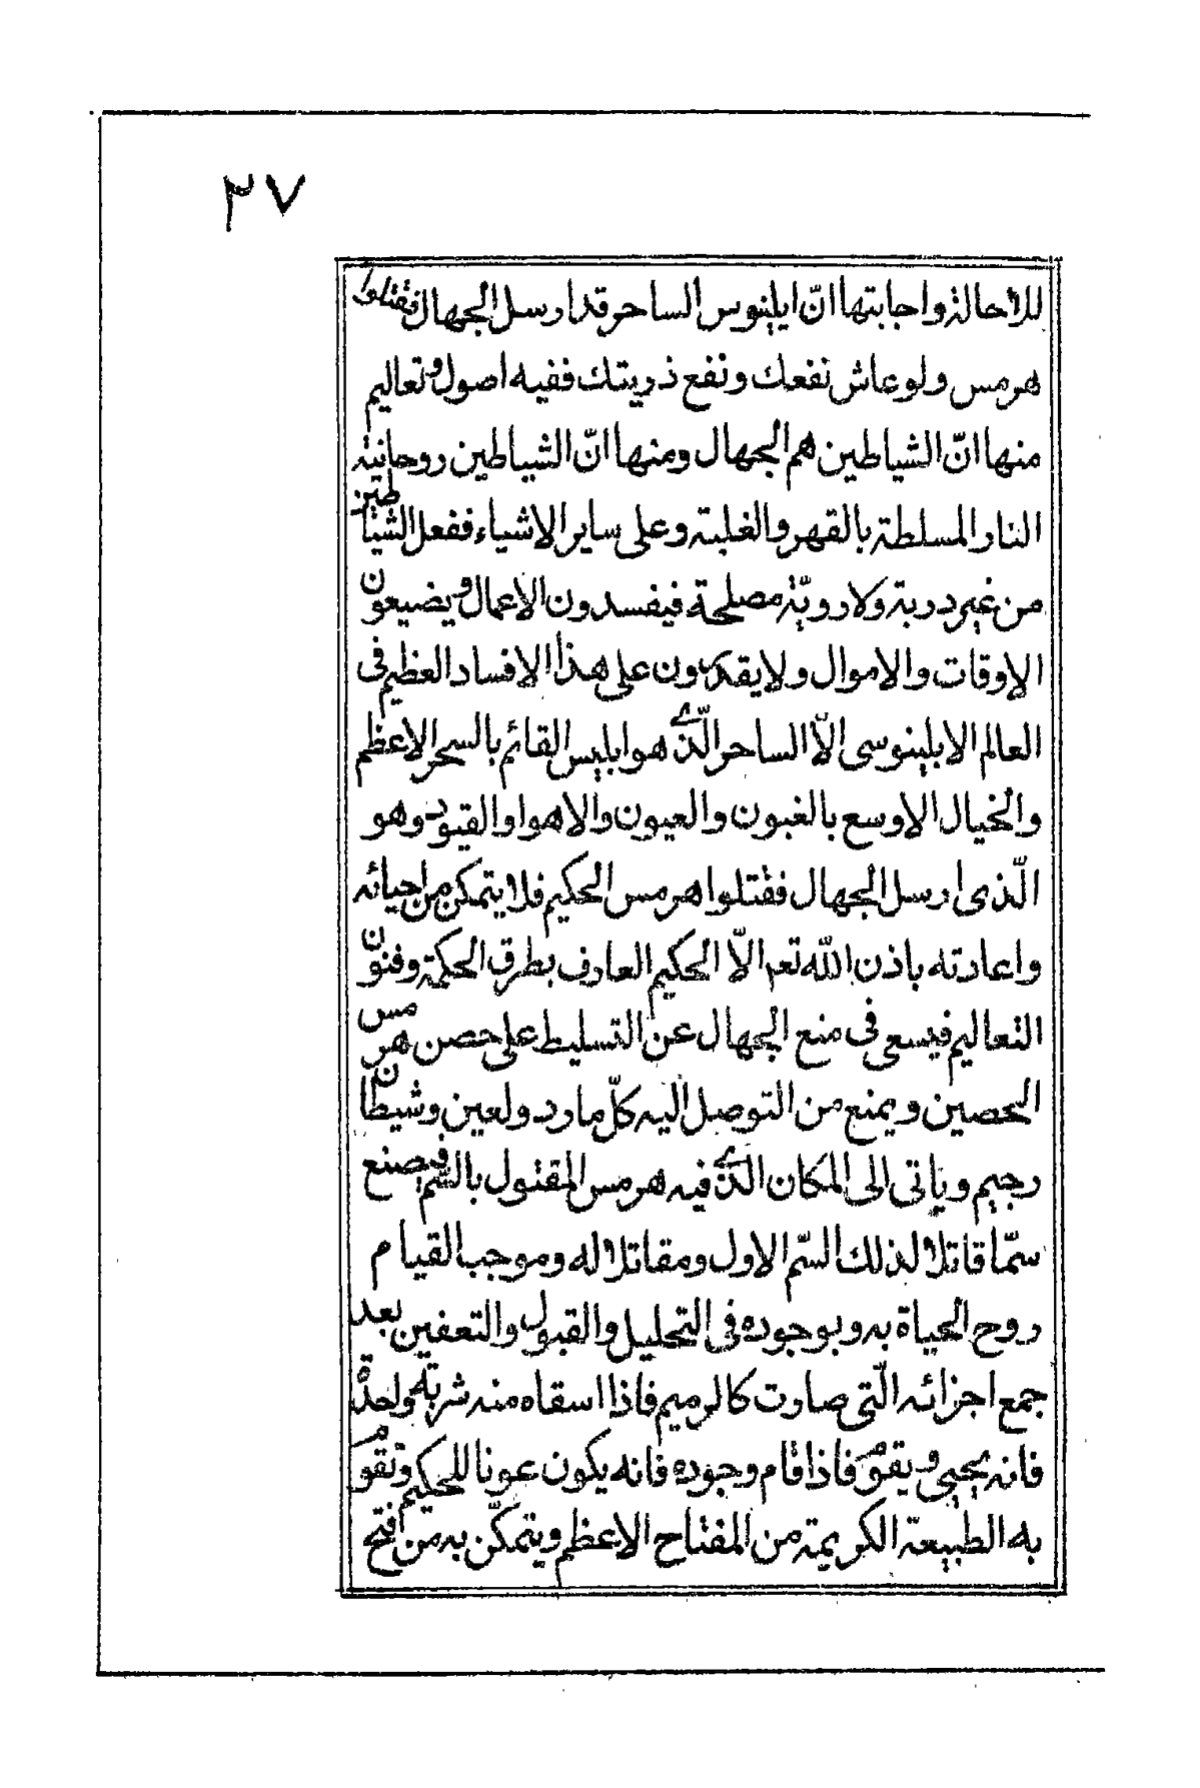 ٣٧
للاحالة واجابتها انّ ايلينوس الساحر قد ارسل الجهال فقتلوا
هرمس ولو عاش نفعك ونفع ذريتك ففيه اصول وتعاليم
منها انّ الشياطين هم الجهال ومنها انّ الشياطين روحانية
النار المسلطة بالقهر والغلبة وعلى ساير الاشياء ففعل الشياطين
من غير دربة ولا رويّة مصلحة فيفسدون الاعمال ويضيعون
الاوقات والاموال ولا يقدرون على هذا الافساد العظيم فى
العالم الابلينوسى الّا الساحر الّذى هو ابليس القائم بالسحر الاعظم
والخيال الاوسع بالغبون والعيون والاهوا والقيود وهو
الّذى ارسل الجهال فقتلوا هرمس الحكيم فلا يتمكن من احيائه
واعادته باذن الله تعم الّا الحكيم العارف بطرق الحكمة وفنون
التعاليم فيسعى فى منع الجهال عن التسليط على حصن هرمس
الحصين ويمنع من التوصل اليه كلّ مارد ولعين وشيطان
رجيم وياتى الى المكان الذى فيه هرمس المقتول بالسم فيصنع
سمّا قاتلا لذلك السّم الاول ومقاتلا له وموجب القيام
روح الحياة به وبوجوده فى التحليل والقبول والتعفين بعد
جمع اجزائه الّتى صارت كالرميم فاذا اسقاه منه شربة واحدة
فانه يحيى ويقوم فاذا قام وجوده فانه يكون عونا للحكيم وتقوم
به الطبيعة الكريمة من المفتاح الاعظم ويتمكّن به من افتح